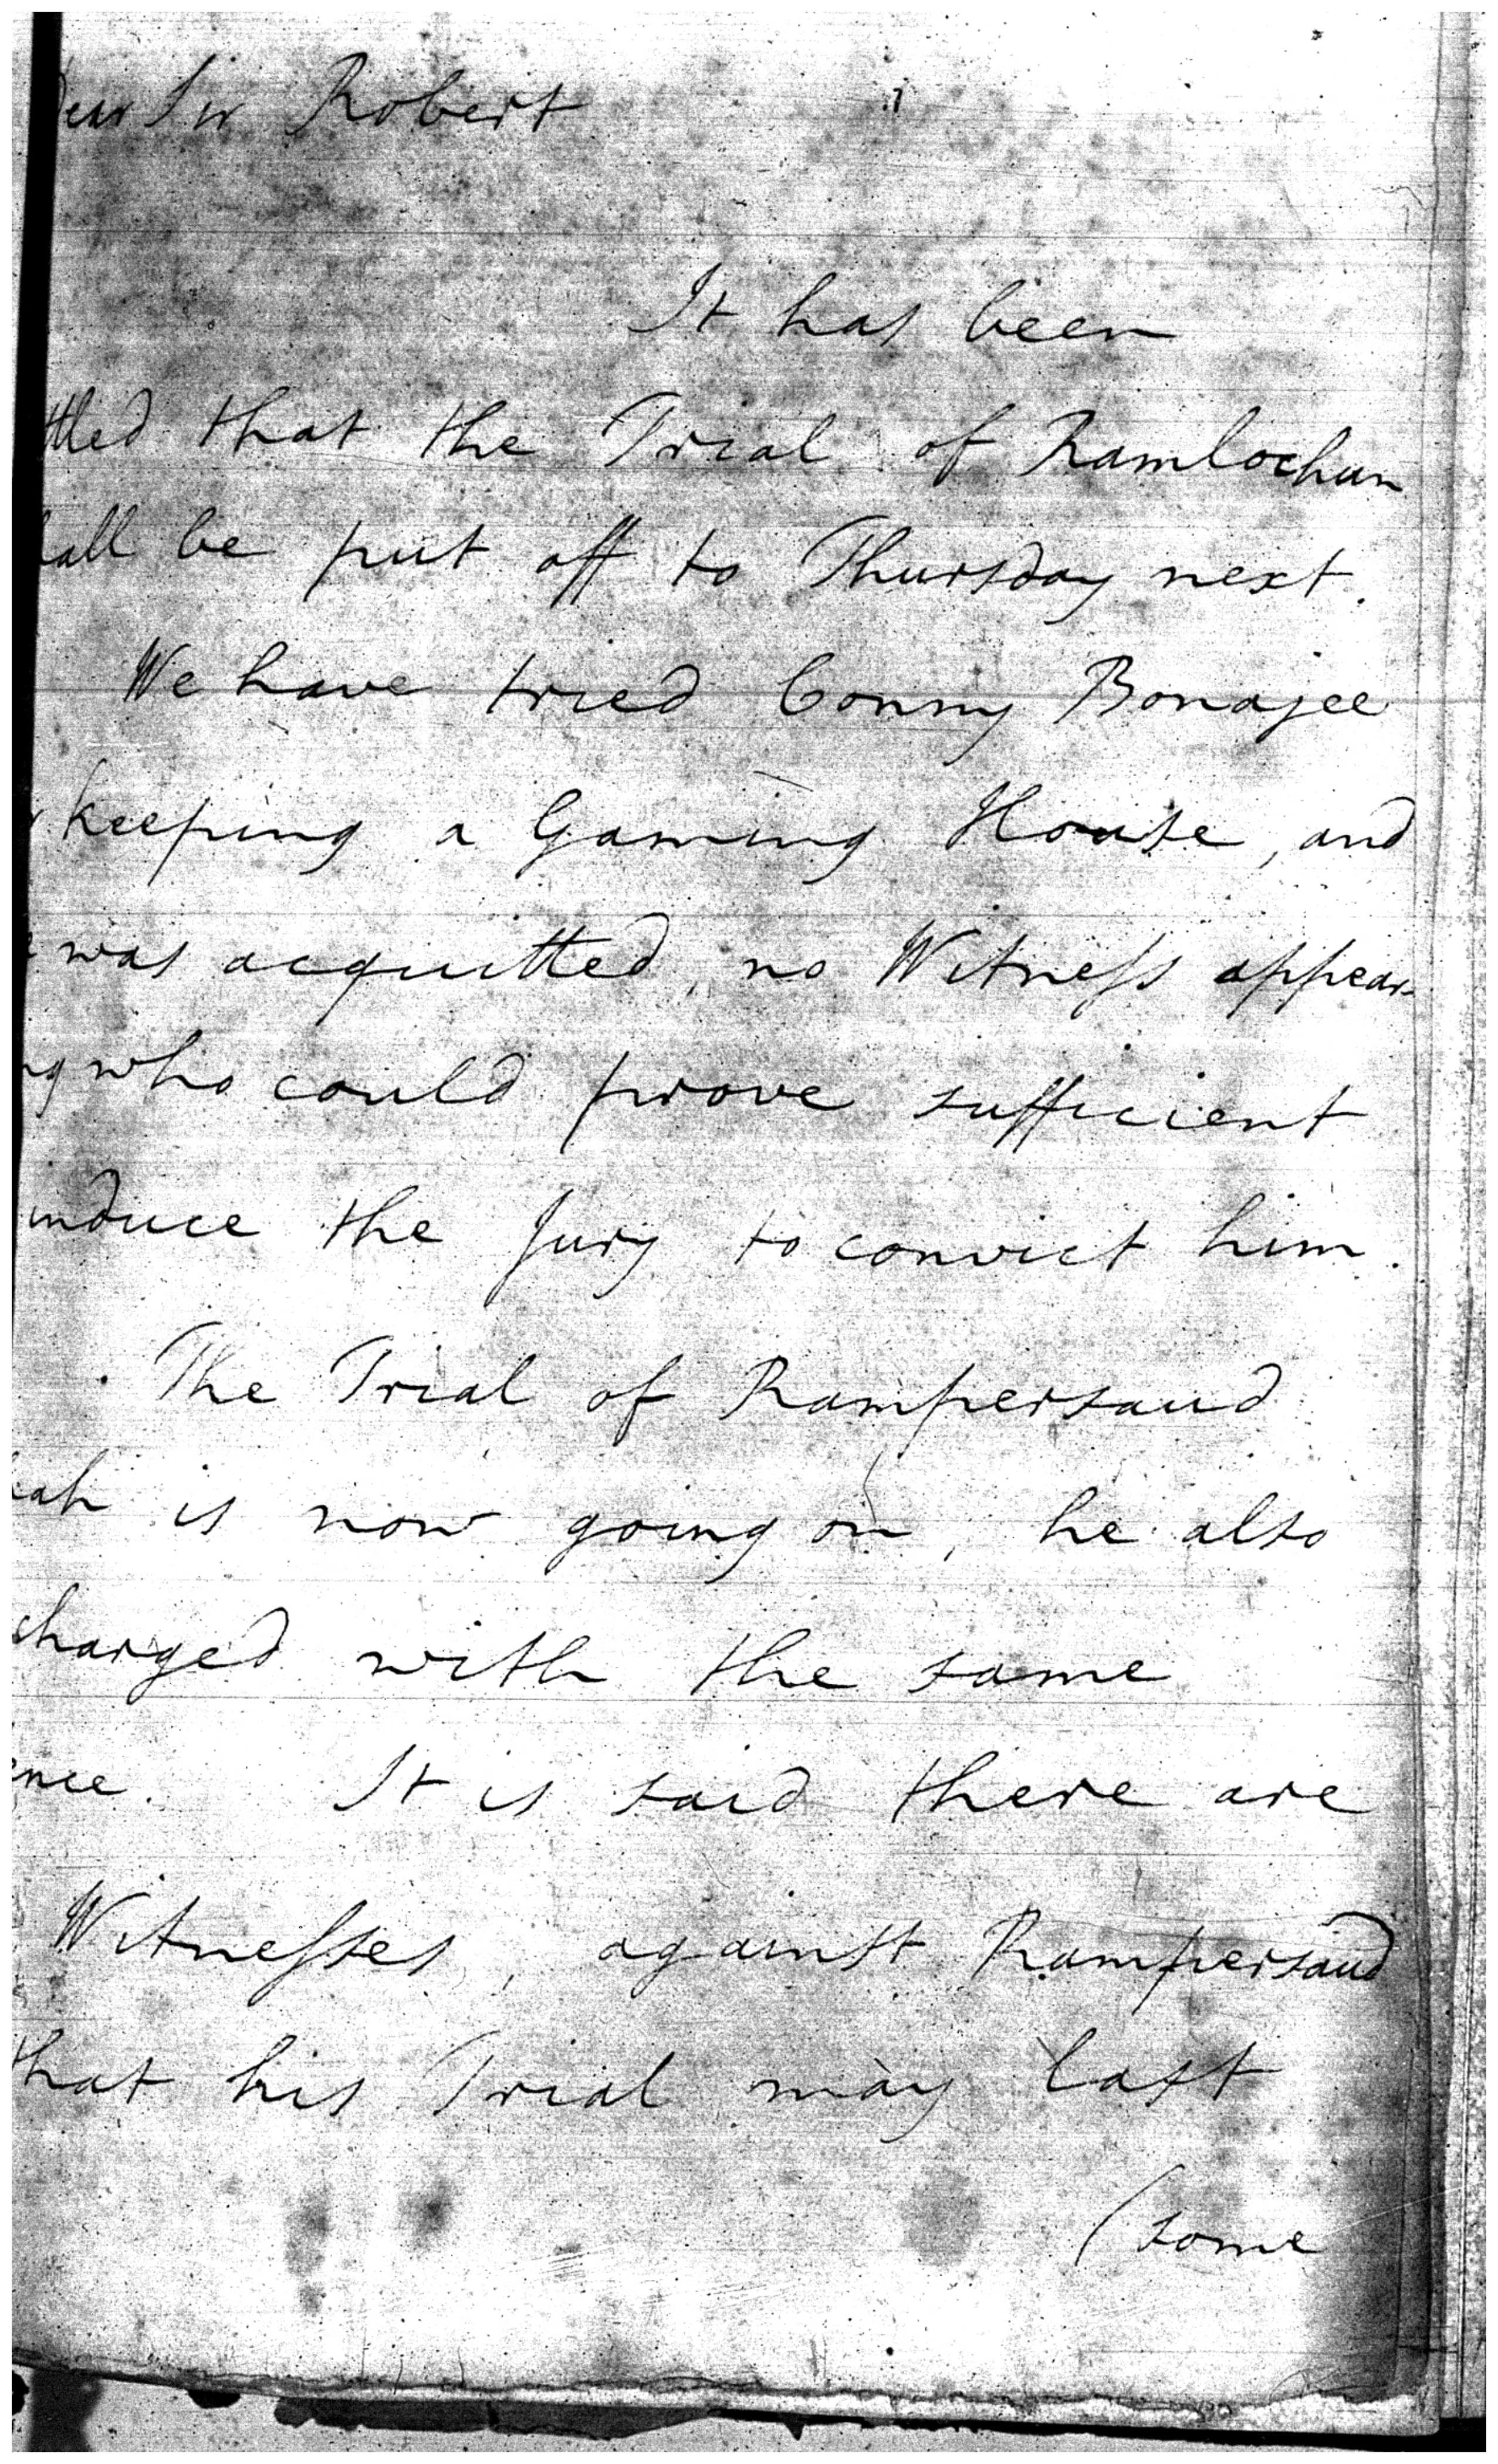 Dear Sir Robert
It has been
ttled that the Trial of Ramlochun
hall be put off to Thursday next.
We have tried Conny Bonajee
keeping a Gaming House, and
was acquitted, no Witness appear-
ng who could prove sufficient
induce the Jury to convict him.
The Trial of Rampersaud
is now going on, he also
charged with the same
ence. It is said there are
Witnesses, against Rampersaud
that his Trial may last
(some